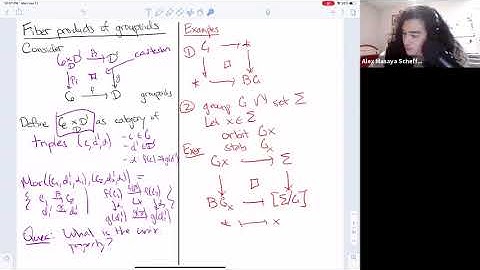 Fiber products of groupoids
Consider
C ×_D D' →^{p_2} D'
cartesian
p_1 ↓ □ ↓ g
C →^f D groupoids
Define C ×_D D' as category of
triples (c, d', α)
- c ∈ C
- d' ∈ D'
- α: f(c) → g(d')
Mor((c_1, d'_1, α_1), (c_2, d'_2, α_2)) =
Ques: What is the univ
property?
Examples
① G → *
↓ □ ↓
* → BG
② group G ↷ set Σ
Let x ∈ Σ
orbit Gx
stab G_x
Exer
Gx → Σ
↓ □ ↓
BG_x → [Σ/G]
* ↦ x
Alex Masaya Scheff...